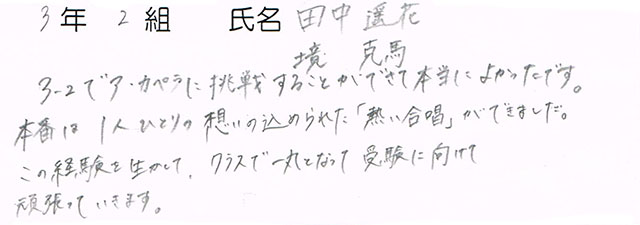 3年 2組 氏名 田中 遥花
境 克馬
3-2でア・カペラに挑戦することができて本当によかったです。
本番は1人ひとりの想いの込められた「熱い合唱」ができました。
この経験を生かして、クラスで一丸となって受験に向けて
頑張っていきます。